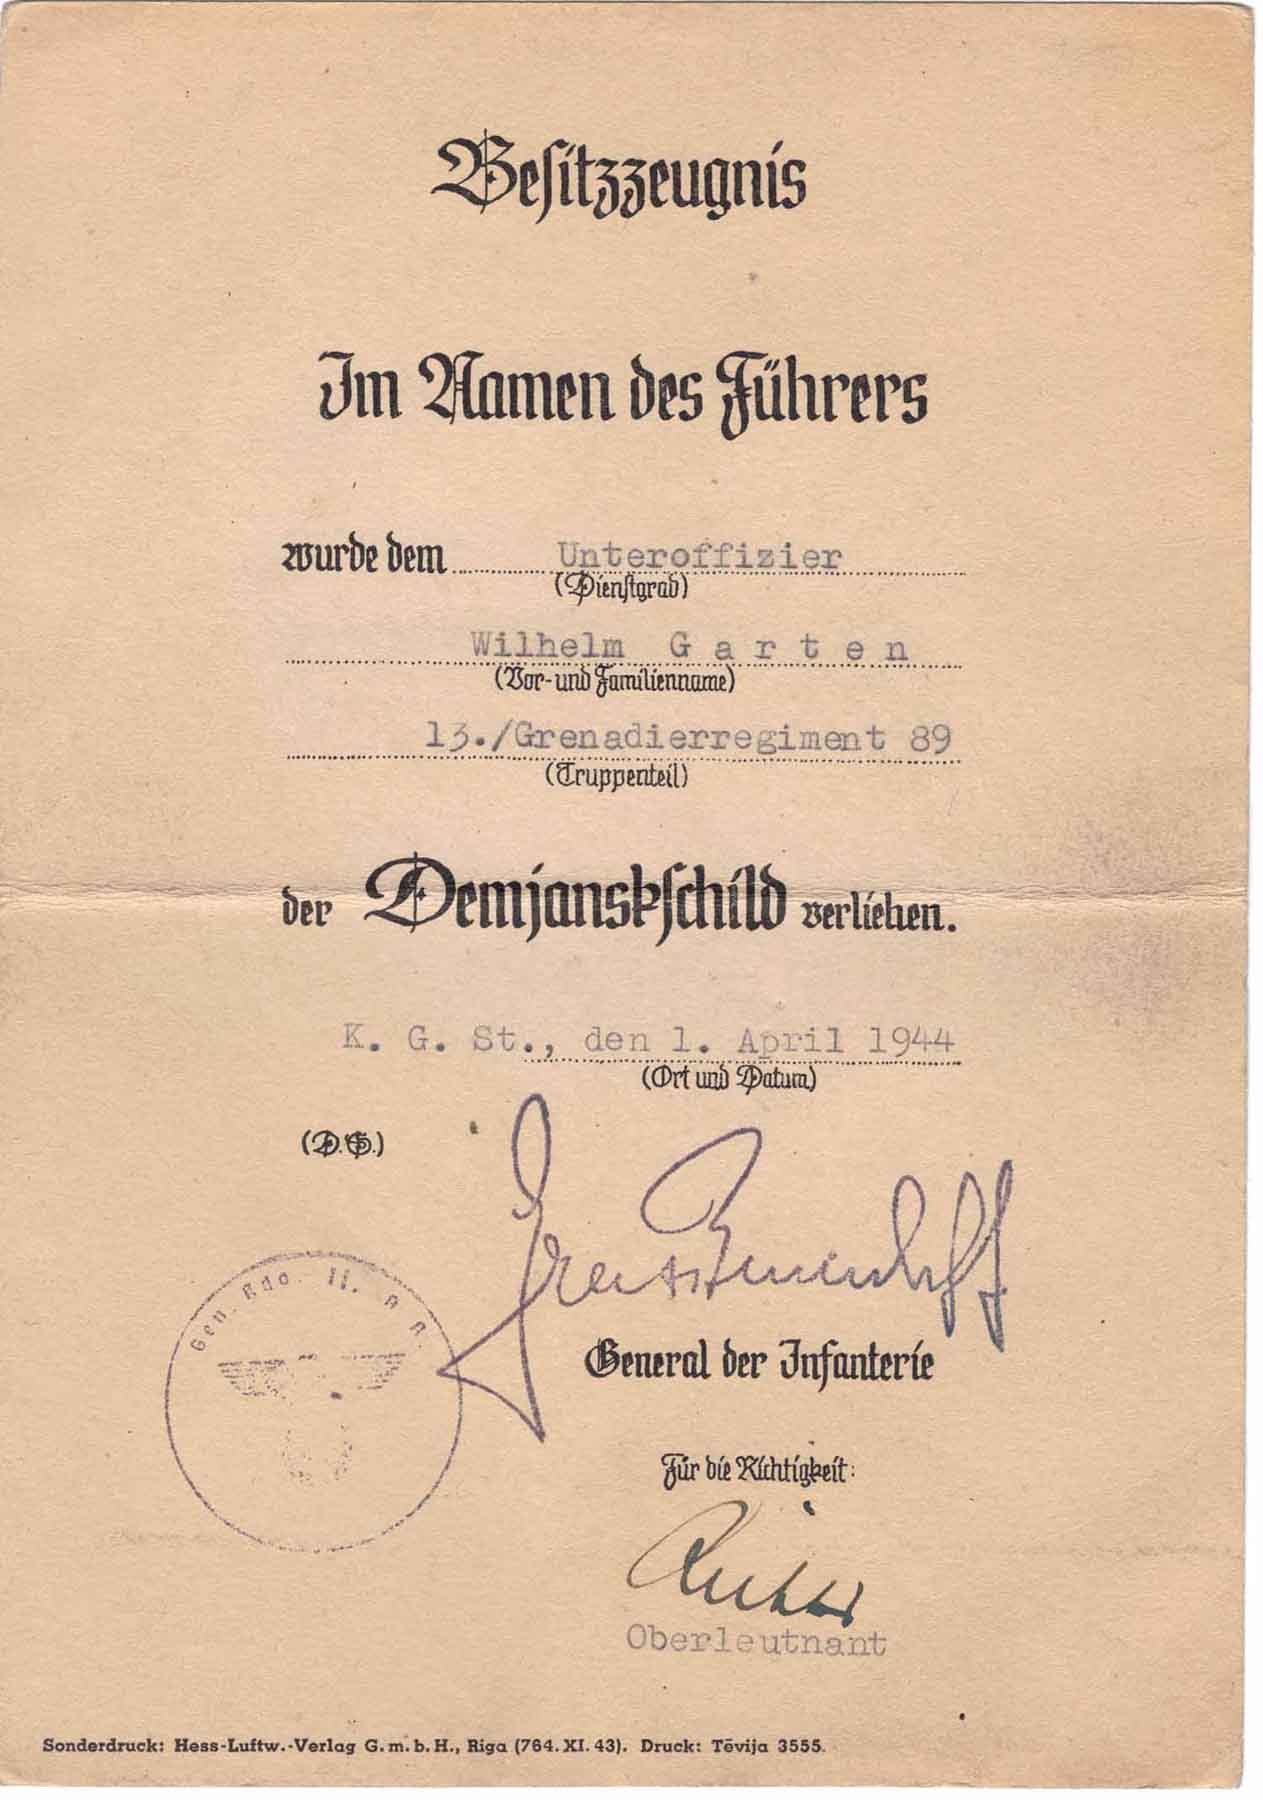 Besitzzeugnis
Im Namen des Führers
wurde dem Unteroffizier
(Dienstgrad)
Wilhelm Garten
(Vor- und Familienname)
13./Grenadierregiment 89
(Truppenteil)
der Demjanskschild verliehen.
K. G. St., den 1. April 1944
(Ort und Datum)
(D.S.)
Gen. Kdo. II. A.K.
General der Infanterie
Für die Richtigkeit:
Oberleutnant
Sonderdruck: Hess-Luftw.-Verlag G.m.b.H., Riga (764. XI. 43). Druck: Tēvija 3555.